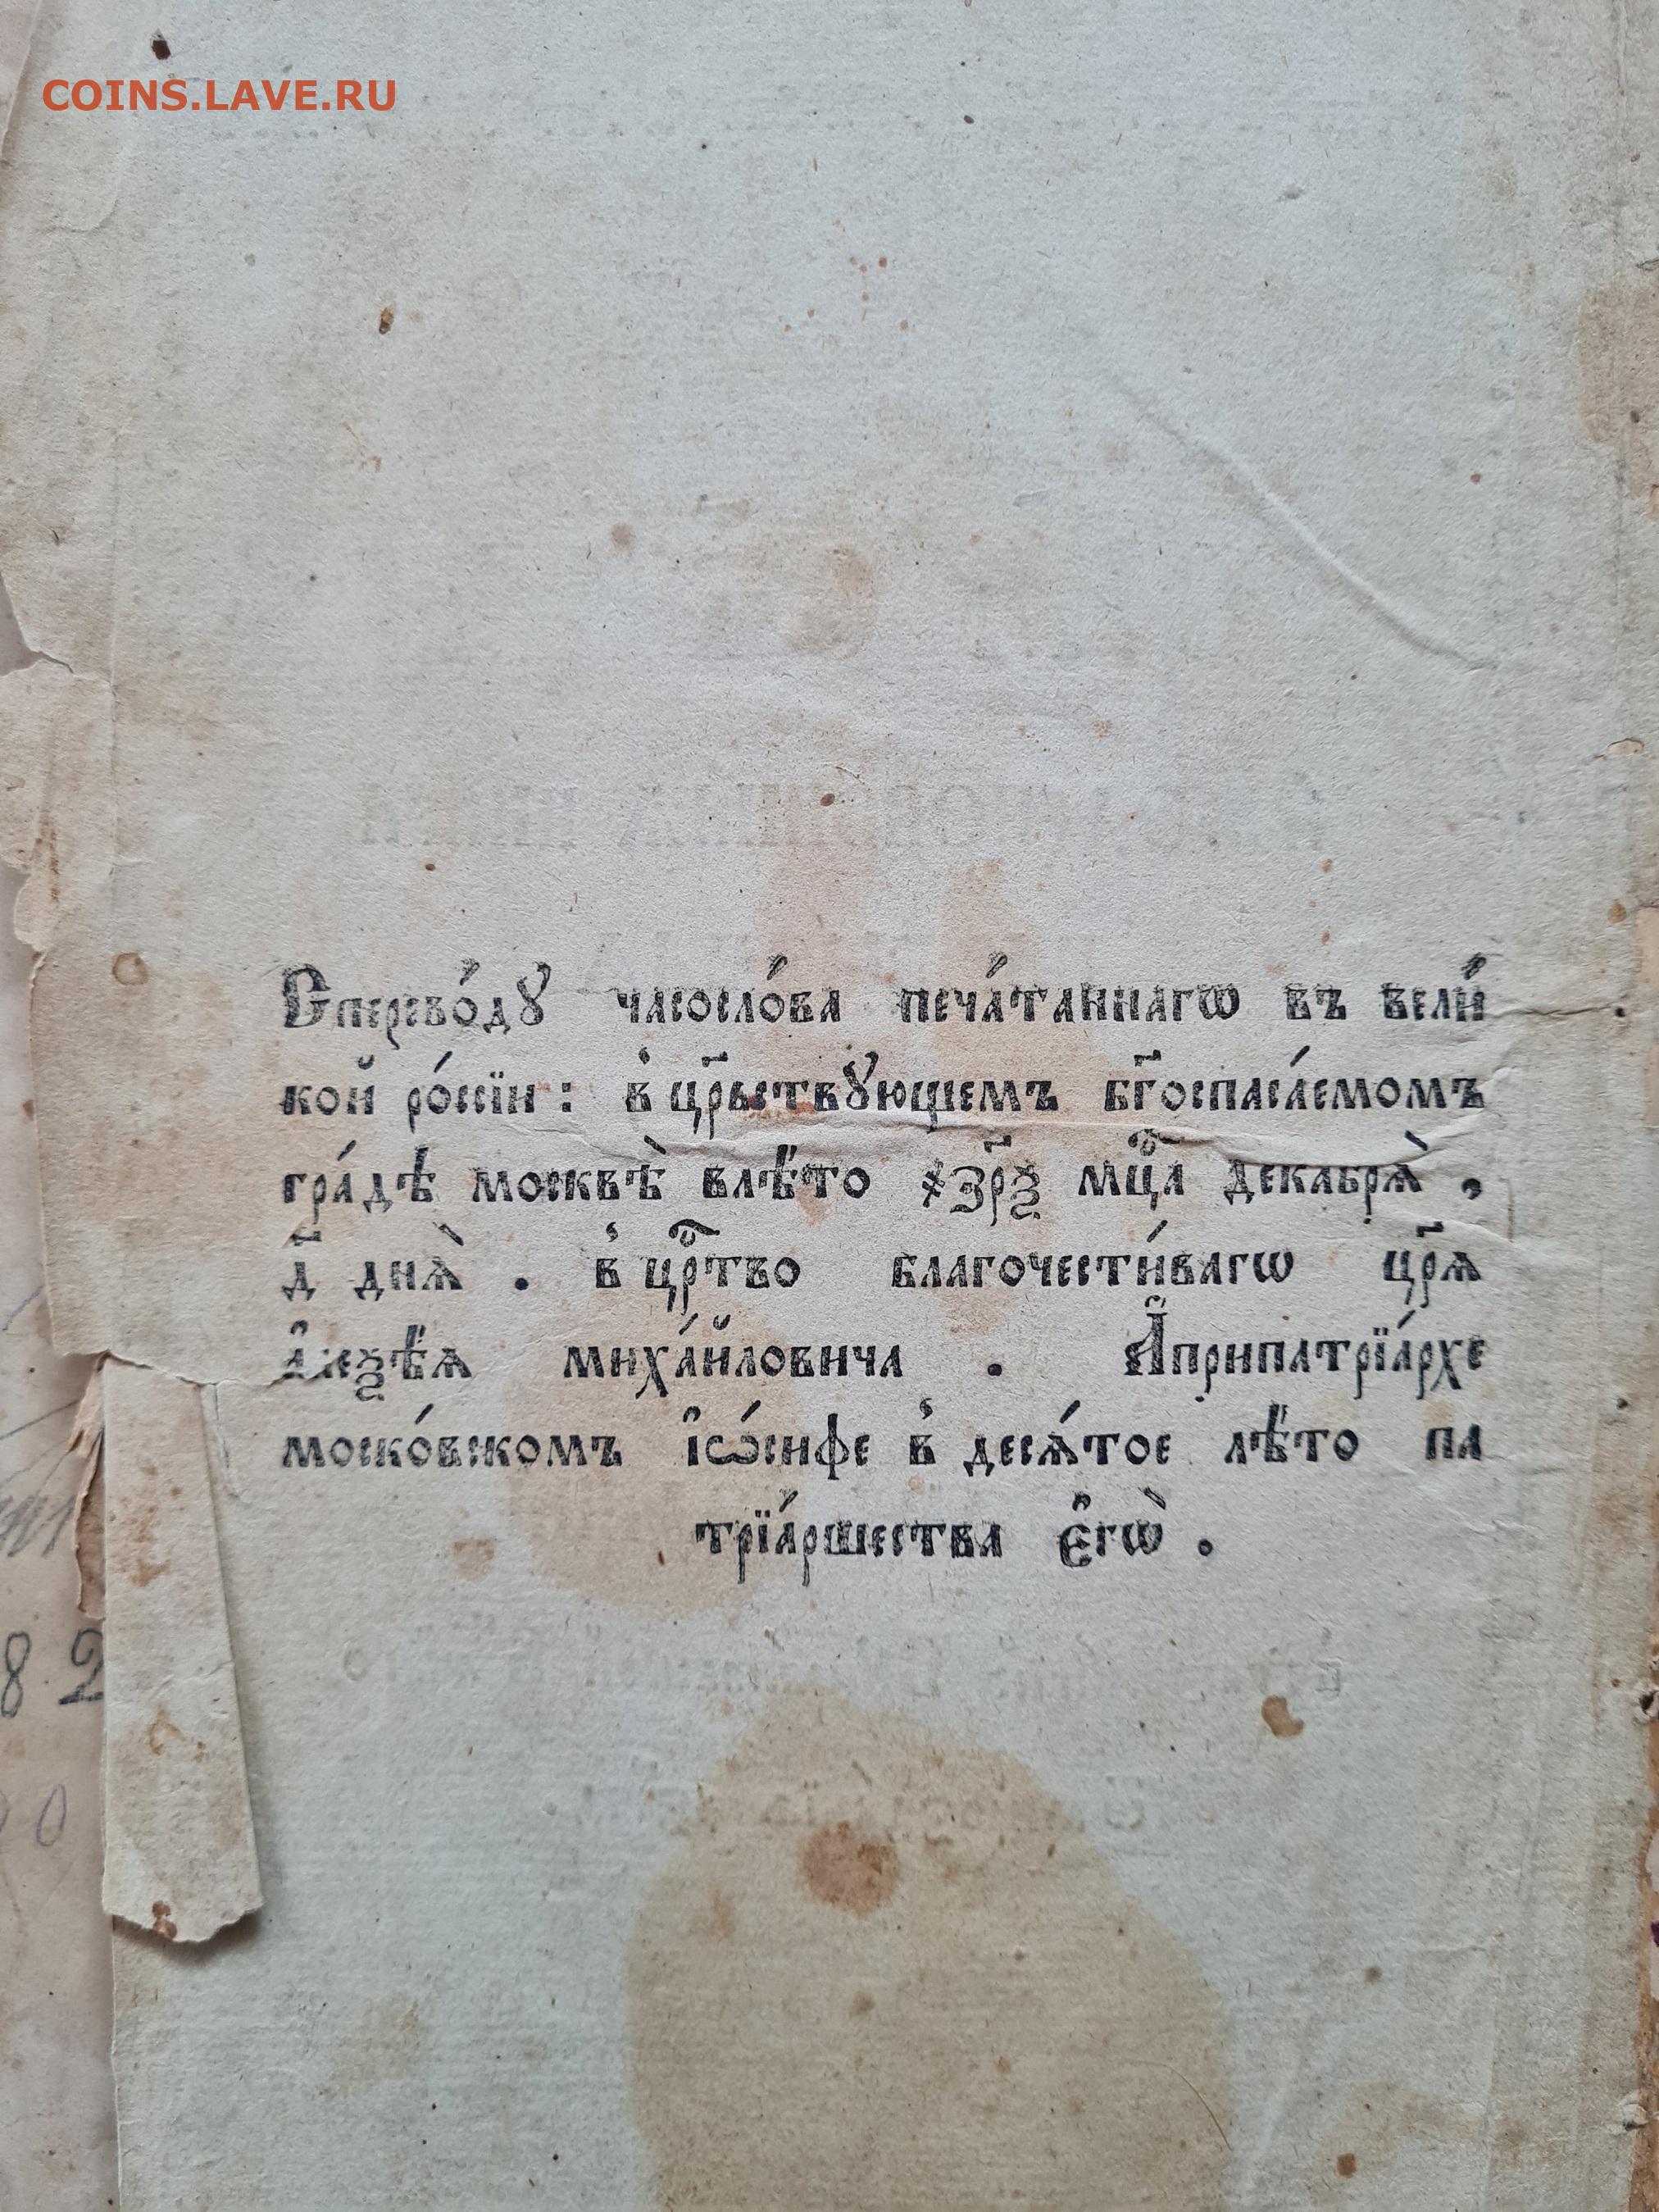 COINS.LAVE.RU
Сперево́дꙋ часосло́ва печа́таннагѡ въ вели́
кой ро́ссїи : в҆ цр҃ьствꙋющемъ бг҃оспаса́емомъ
гра́дѣ москвѣ̀ влѣ́то ҂зр҃ѯ мц҃а декабрѧ̀ ,
д҃ днѧ̀. в҆ црⷭ҇тво благочести́вагѡ цр҃ѧ
а҆леѯѣ́ѧ миха́йловича . А҆припатрїа́рхе
моско́вскомъ і҆ѡ́сифе в҆ десѧ́тое лѣ́то па
трїа́ршества є҆гѡ̀ .
82
0